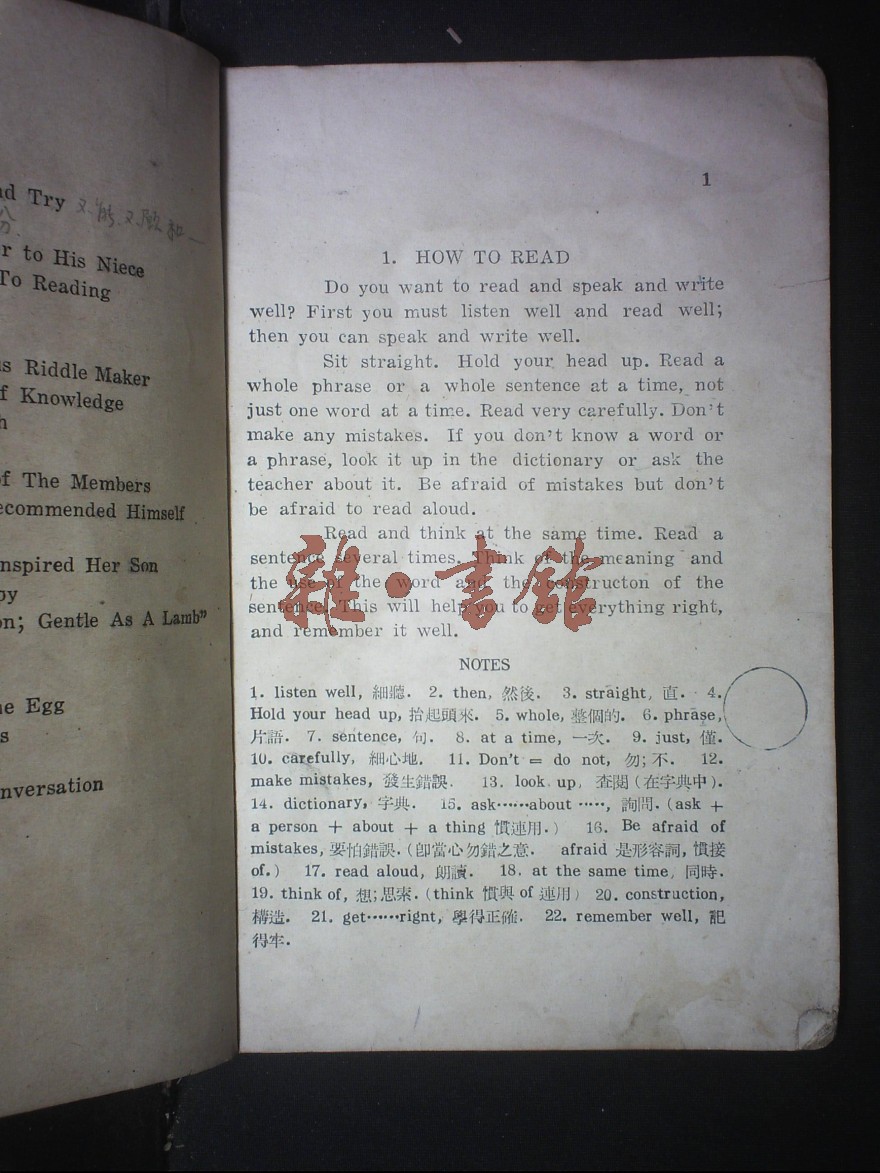 nd Try
r to His Niece
To Reading
s Riddle Maker
f Knowledge
h
f The Members
ecommended Himself
nspired Her Son
py
on; Gentle As A Lamb"
e Egg
s
nversation
1
1. HOW TO READ
Do you want to read and speak and write
well? First you must listen well and read well;
then you can speak and write well.
Sit straight. Hold your head up. Read a
whole phrase or a whole sentence at a time, not
just one word at a time. Read very carefully. Don't
make any mistakes. If you don't know a word or
a phrase, look it up in the dictionary or ask the
teacher about it. Be afraid of mistakes but don't
be afraid to read aloud.
Read and think at the same time. Read a
sentence several times. Think of the meaning and
the use of the word and the constructon of the
sentence. This will help you to get everything right,
and remember it well.
雜·書館
NOTES
1. listen well, 細聽. 2. then, 然後. 3. straight, 直. 4.
Hold your head up, 抬起頭來. 5. whole, 整個的. 6. phrase,
片語. 7. sentence, 句. 8. at a time, 一次. 9. just, 僅.
10. carefully, 細心地. 11. Don't = do not, 勿; 不. 12.
make mistakes, 發生錯誤. 13. look up, 查閱 (在字典中).
14. dictionary, 字典. 15. ask······about ·····, 詢問. (ask +
a person + about + a thing 慣連用.) 16. Be afraid of
mistakes, 要怕錯誤. (卽當心勿錯之意. afraid 是形容詞, 慣接
of.) 17. read aloud, 朗讀. 18. at the same time, 同時.
19. think of, 想; 思索. (think 慣與 of 連用) 20. construction,
構造. 21. get······rignt, 學得正確. 22. remember well, 記
得牢.